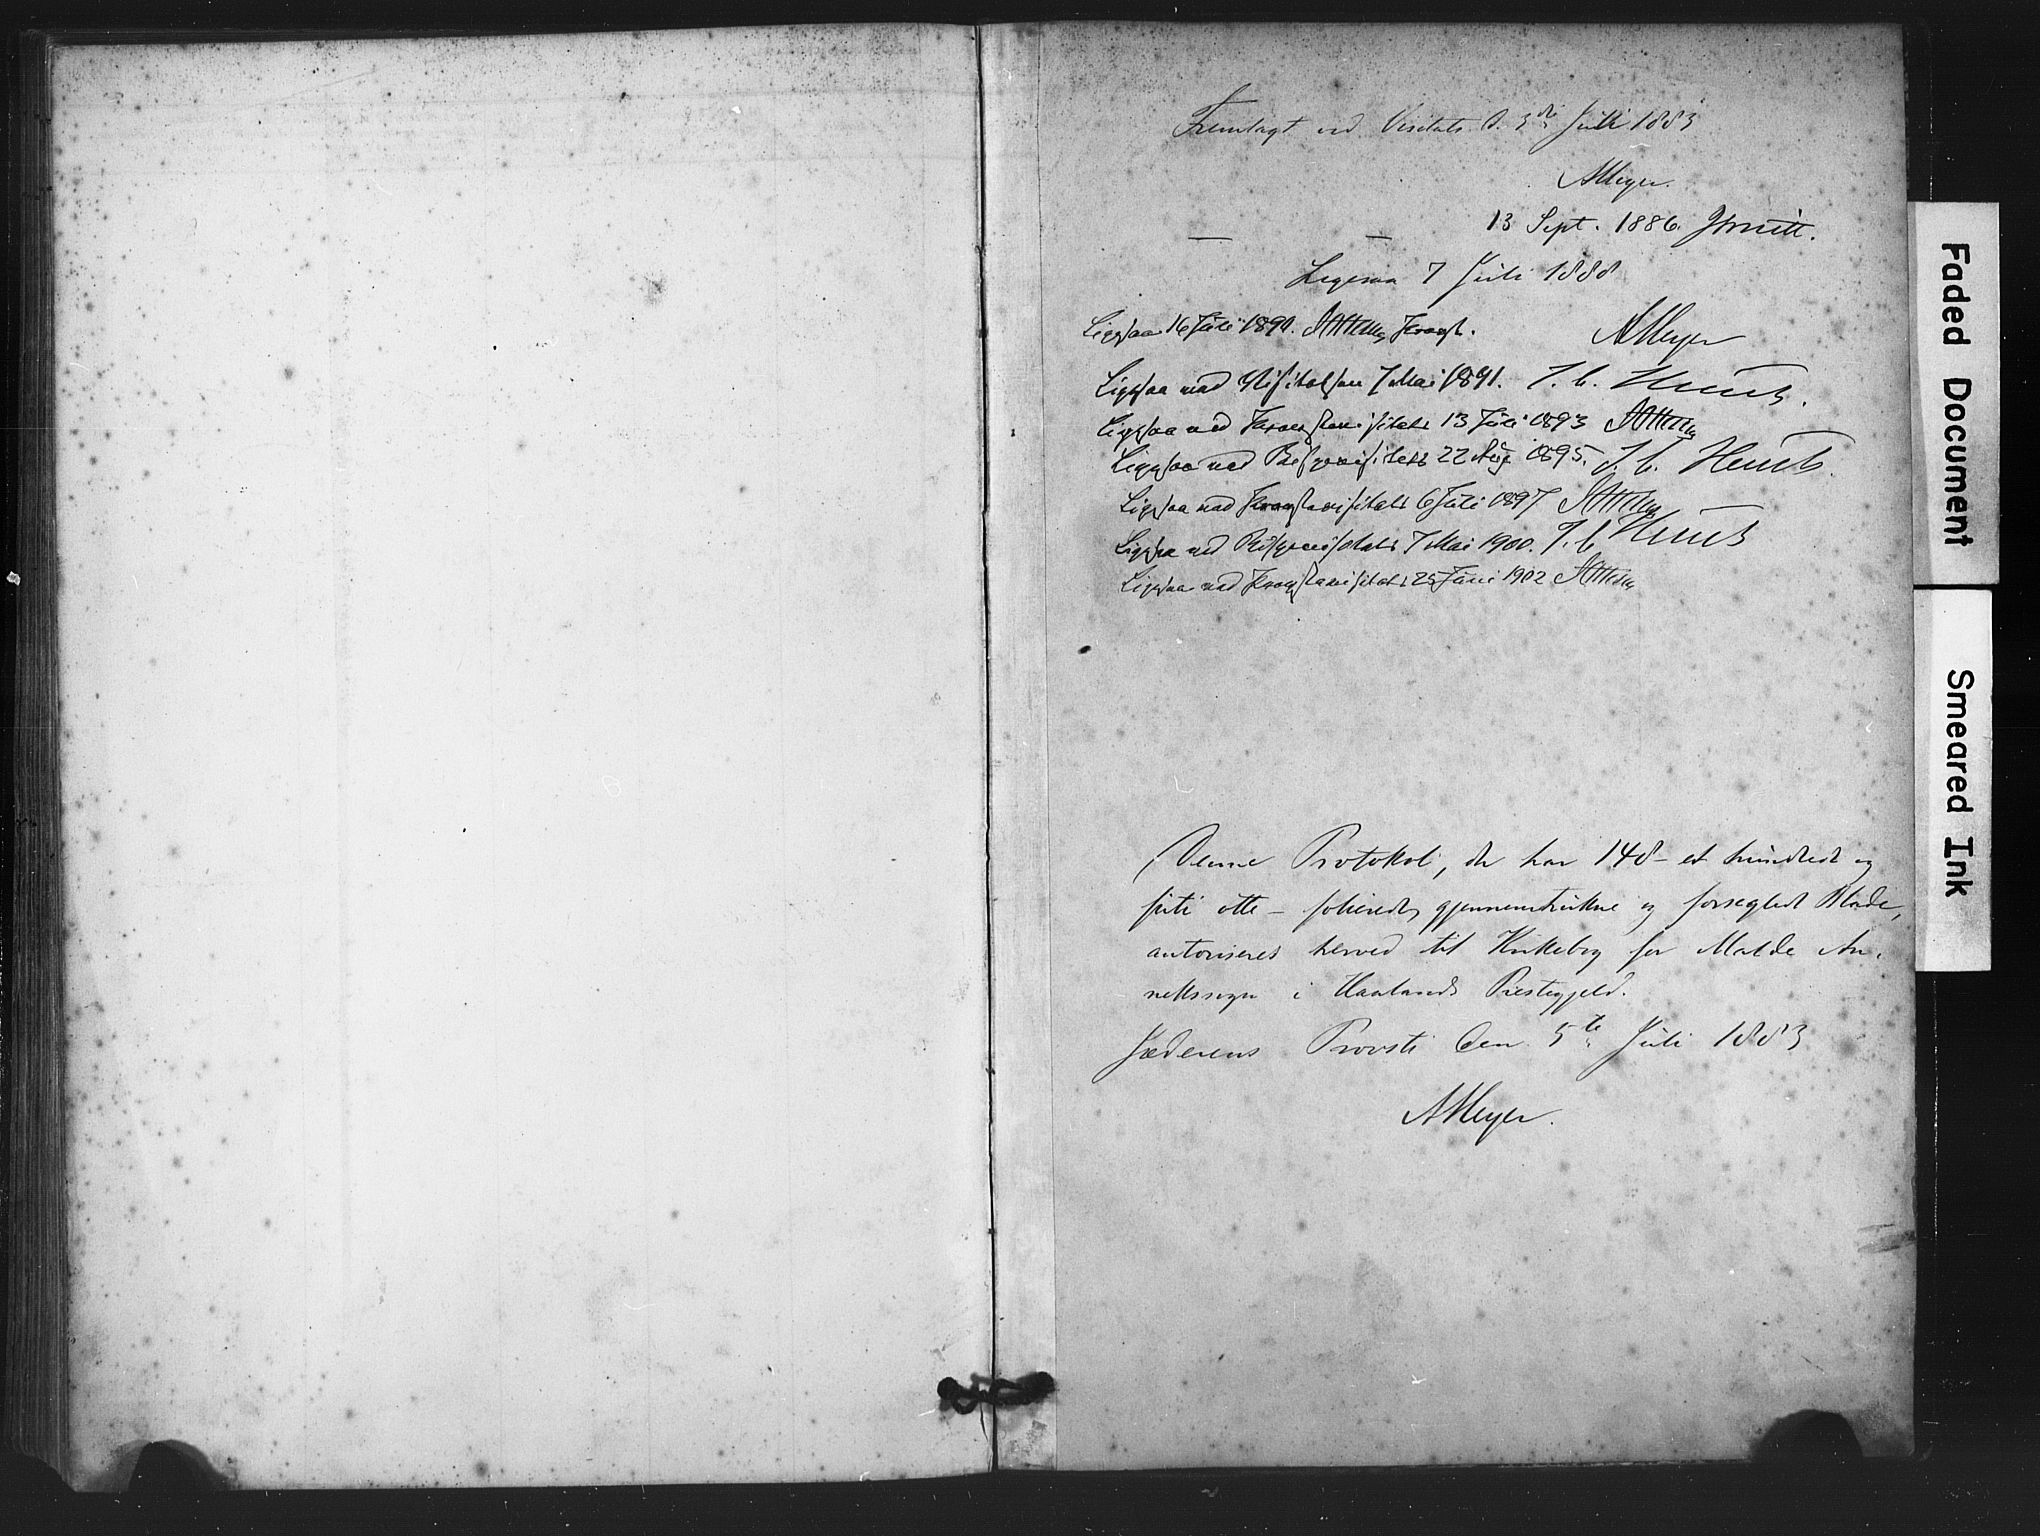 Fremlagt ved Visitats d. 3die Juli 1883
AMeyer.
— — 13 Sept. 1886.
Ligesaa 7 Juli 1888
AMeyer
Ligesaa 16 Juli 1890. Provst.
Ligesaa ved Visitatsen 7 Mai 1891. J. C. Heuch.
Ligesaa ved Provstevisitats 13 Juli 1893
Ligesaa ved Bispevisitats 22 Aug 1895. J. C. Heuch.
Ligesaa ved Provstevisitats 6 Juli 1897
Ligesaa ved Bispevisitats 7 Mai 1900. J. C. Heuch
Ligesaa ved Provstevisitats 25 Juni 1902
Denne Protokol, der har 148 – et hundrede og
firti otte – folierede, gjennemtrukne og forseglede Blade,
autoriseres herved til Kirkebog for Malde An-
nekssogn i Haalands Præstegjeld.
Jæderens Provsti den 5te Juli 1883
AMeyer.
Faded Document
Smeared Ink